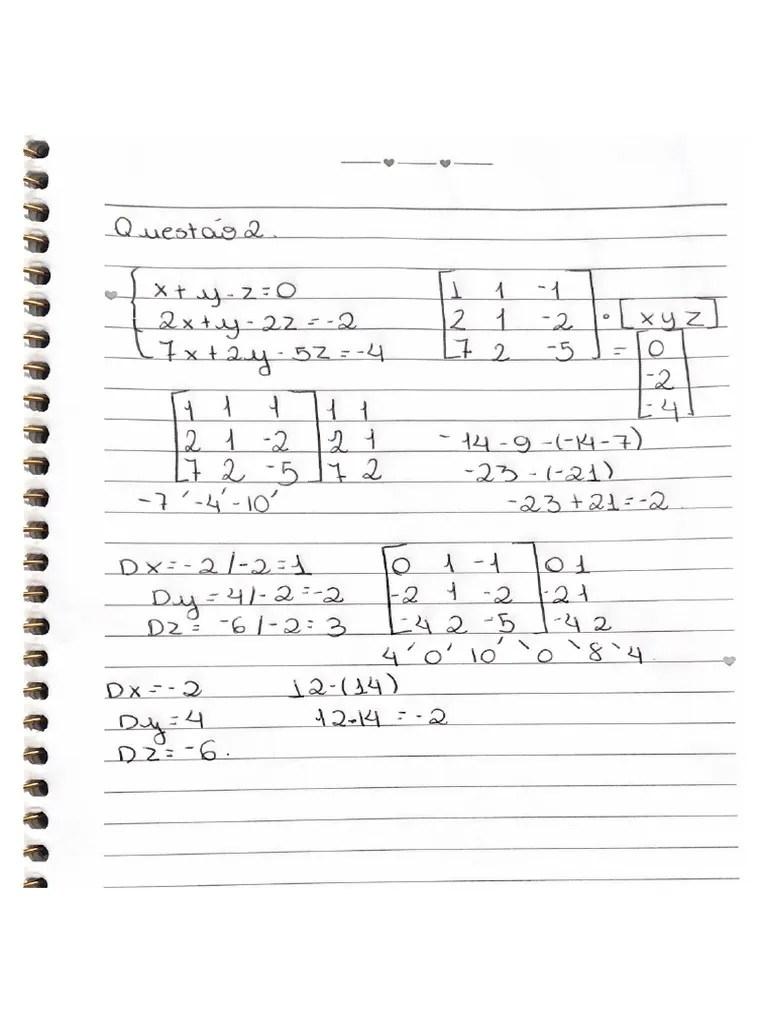 Questão 2.
x + y - z = 0
2x + y - 2z = -2
7x + 2y - 5z = -4
1 1 -1
2 1 -2 • [x y z]
7 2 -5 = 0
-2
-4
1 1 1 1 1
2 1 -2 2 1
7 2 -5 7 2
-7 ' -4 ' -10 '
-14 - 9 - (-14 - 7)
-23 - (-21)
-23 + 21 = -2
Dx = -2 / -2 = 1
Dy = 4 / -2 = -2
Dz = -6 / -2 = 3
0 1 -1 0 1
-2 1 -2 -2 1
-4 2 -5 -4 2
4 ' 0 ' 10 ' ` 0 ` 8 ` 4
Dx = -2
Dy = 4
Dz = -6.
12 - (14)
12 - 14 = -2